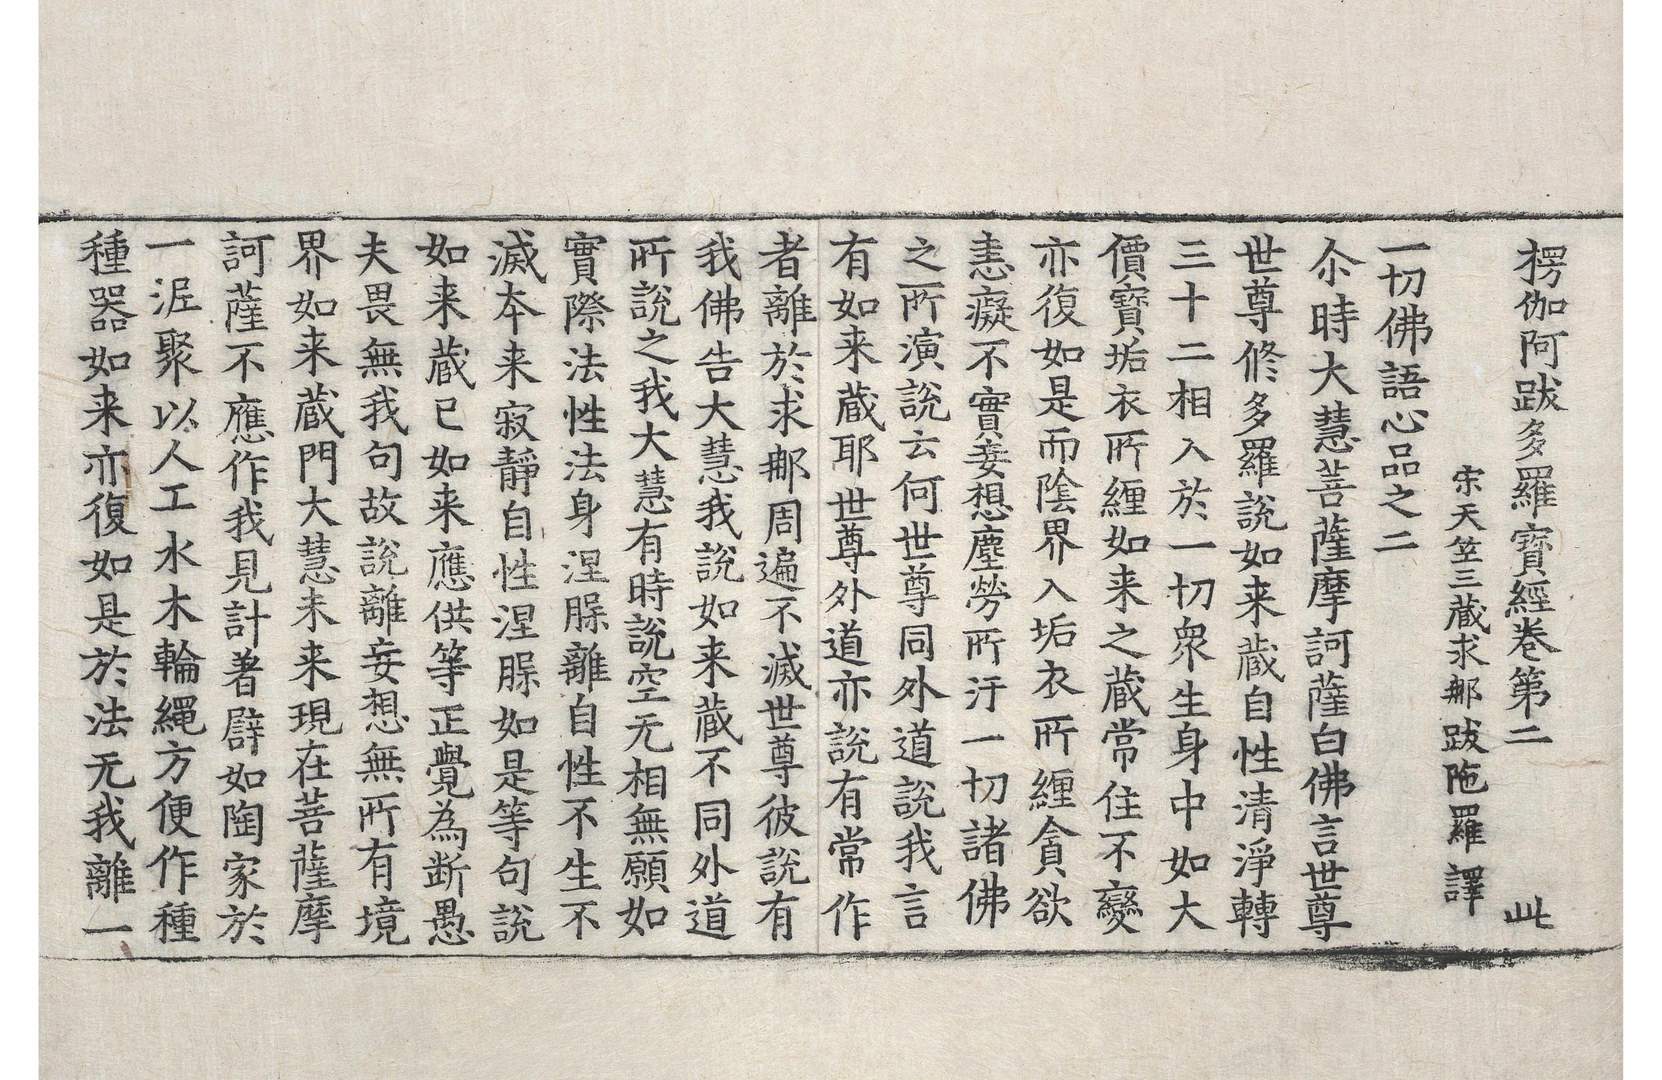 楞伽阿跋多羅寳經卷第二　此
宋天竺三蔵求𨙻跋陁羅譯
一切佛語心品之二
尒時大慧菩薩摩訶薩白佛言世尊
世尊修多羅說如来蔵自性清淨轉
三十二相入於一切衆生身中如大
價寳垢衣所纏如来之蔵常住不變
亦復如是而陰界入垢衣所纏貪欲
恚癡不實妄想塵勞所汙一切諸佛
之所演說云何世尊同外道說我言
有如来蔵耶世尊外道亦說有常作
者離於求𨙻周遍不滅世尊彼說有
我佛告大慧我說如来蔵不同外道
所說之我大慧有時說空无相無願如
實際法性法身涅槃離自性不生不
滅本来寂靜自性涅槃如是等句說
如来蔵已如来應供等正覺為断愚
夫畏無我句故說離妄想無所有境
界如来蔵門大慧未来現在菩薩摩
訶薩不應作我見計著譬如陶家於
一泥聚以人工水木輪繩方便作種
種器如来亦復如是於法无我離一